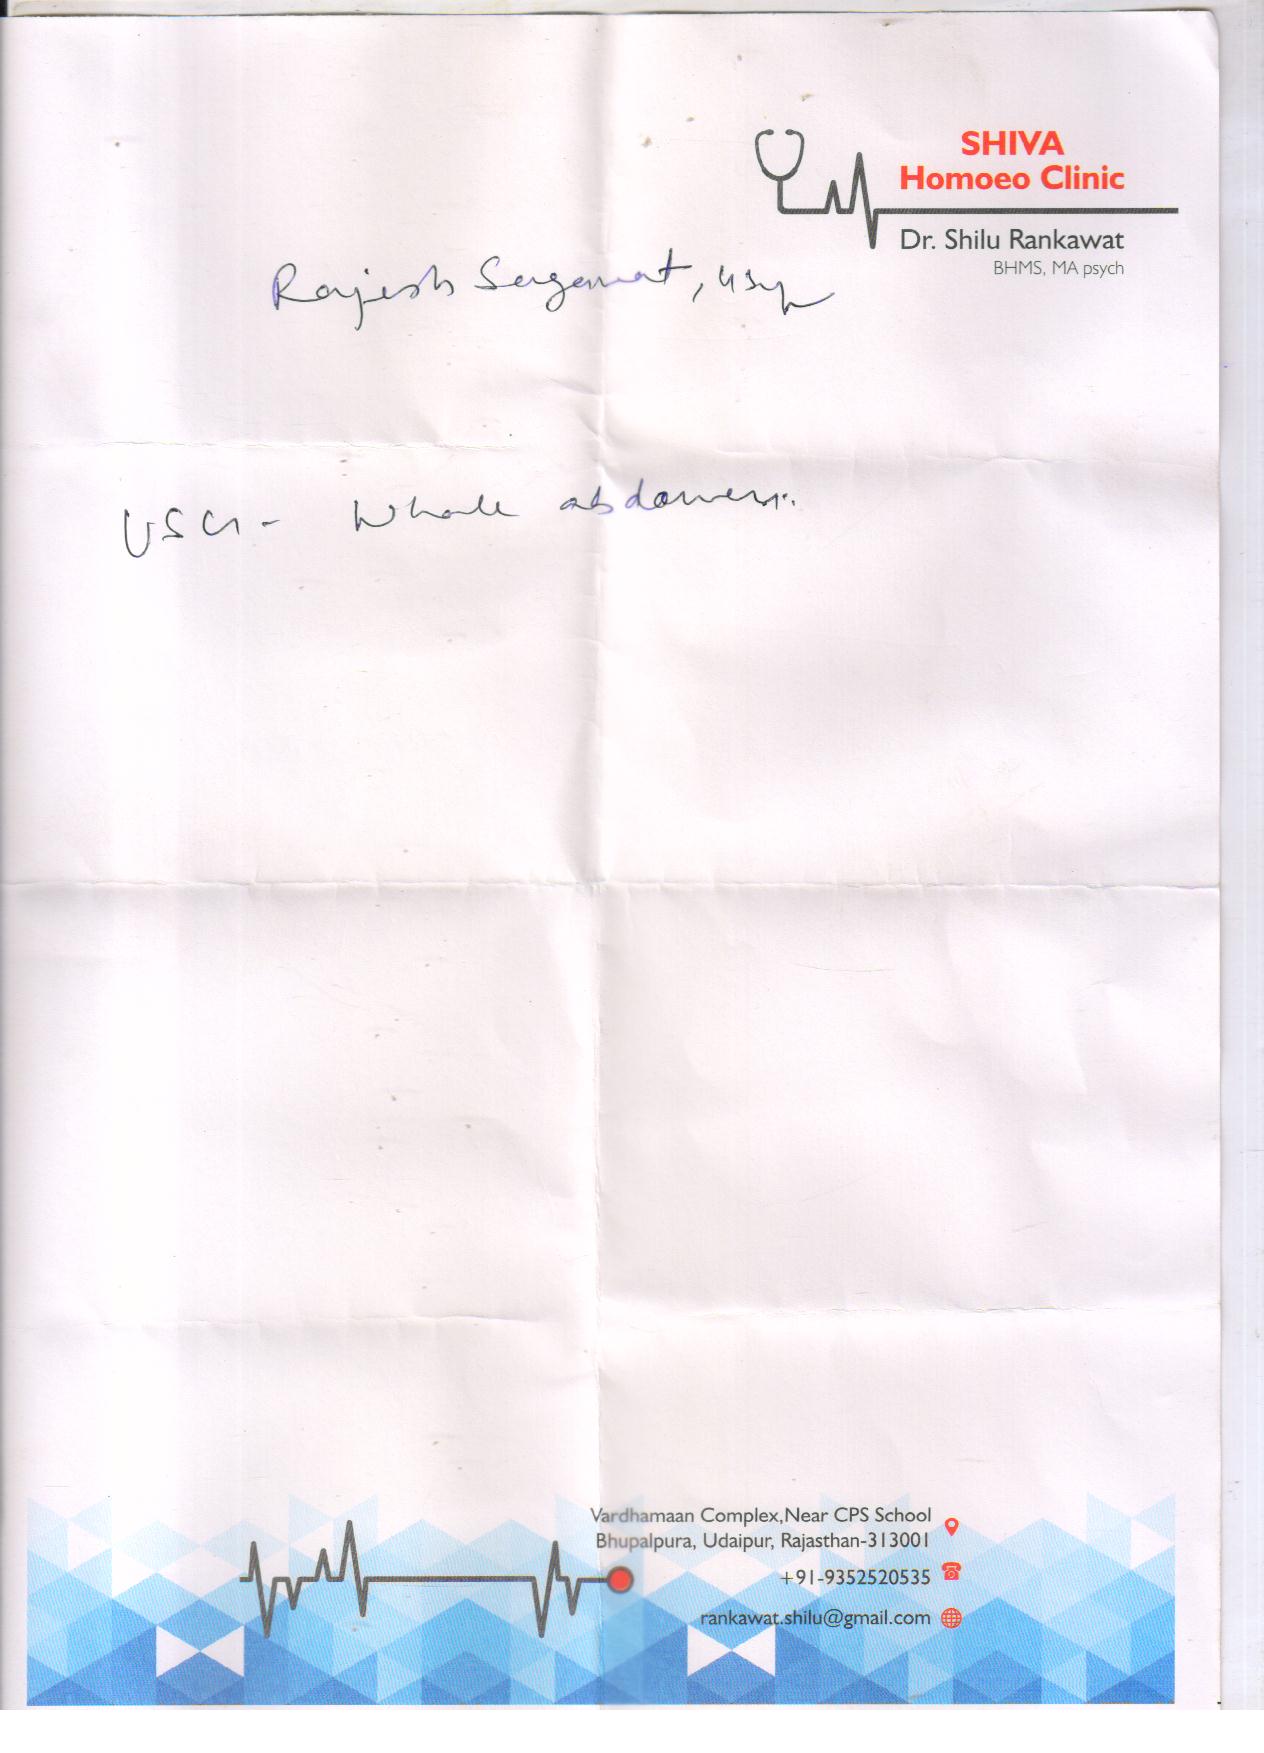 SHIVA
Homoeo Clinic
Dr. Shilu Rankawat
BHMS, MA psych
Rajesh
USG - Whole abdomen.
Vardhamaan Complex,Near CPS School
Bhupalpura, Udaipur, Rajasthan-313001
+91-9352520535
rankawat.shilu@gmail.com